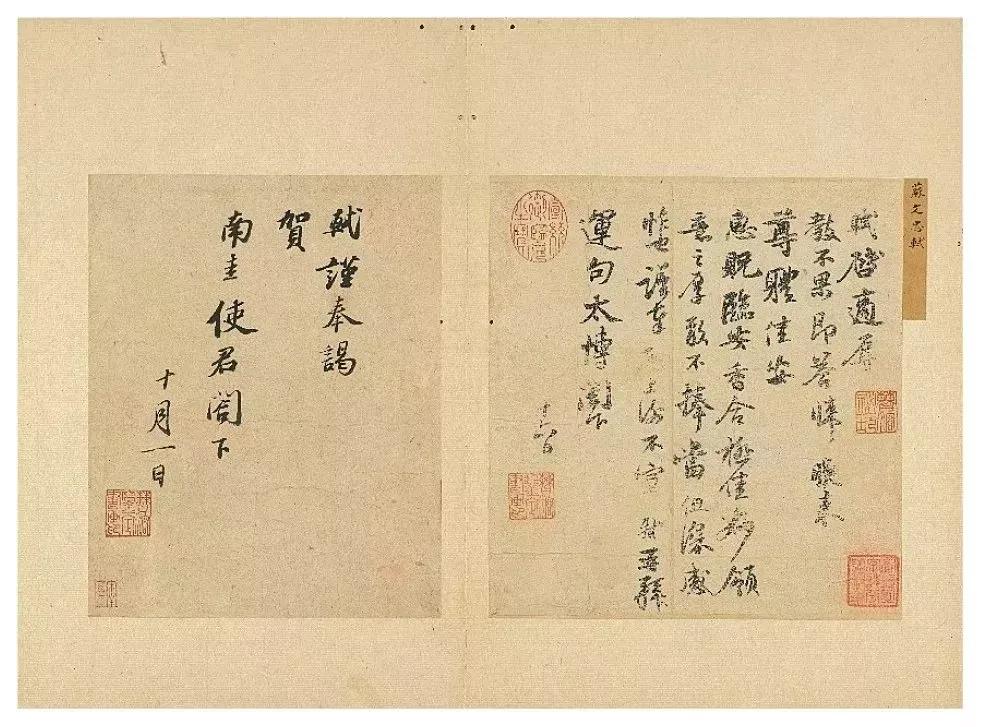 蘇文忠軾
軾啓適辱
教不果即答悚悚晚來
尊體佳安
惠貺臨安香合極佳妙領
意之厚敢不捧當但深感
怍也謹奉啓上謝不宣 軾再拜
運句太博閣下
十六日
軾謹奉謁
賀
南圭使君閤下
十月一日